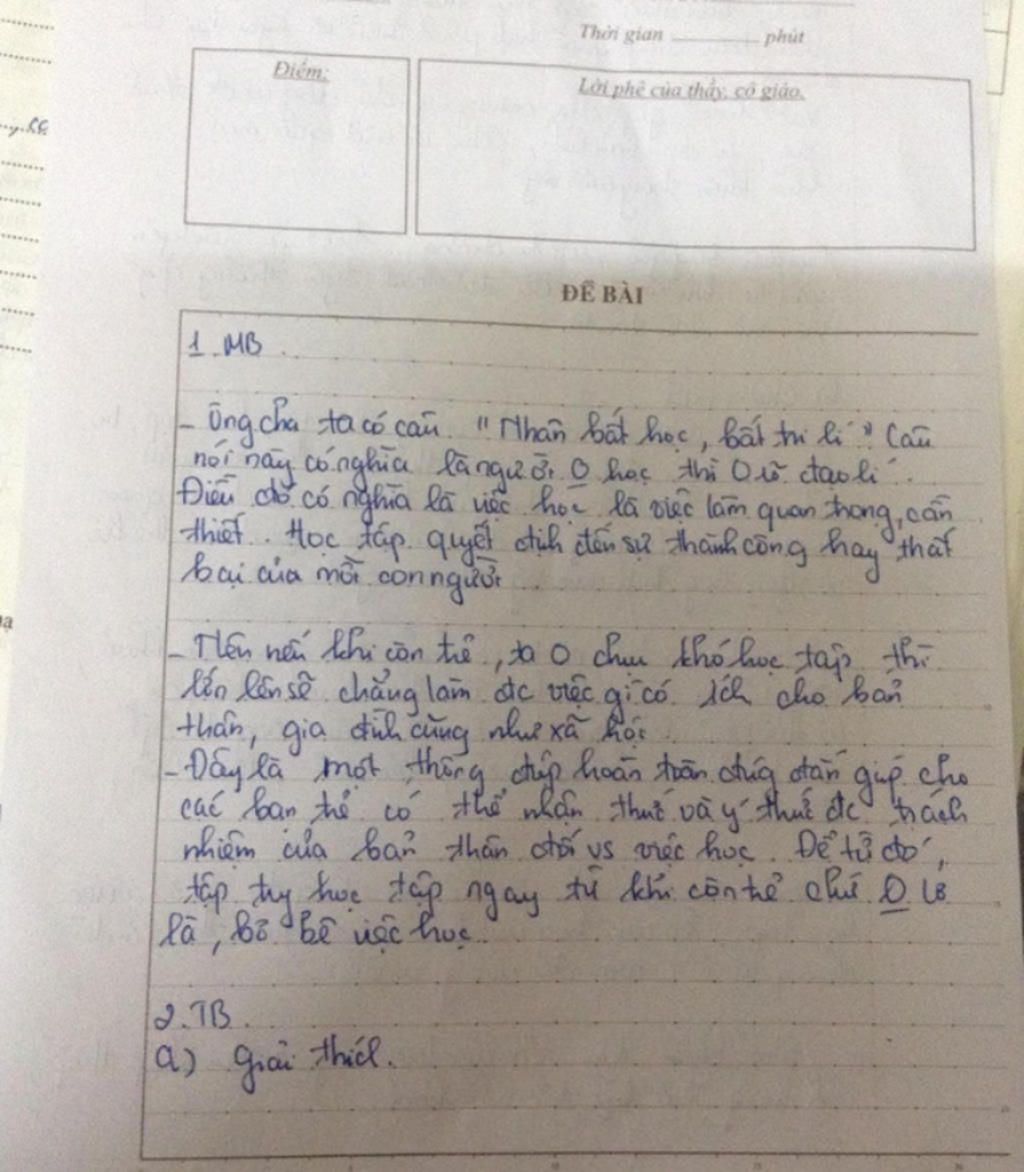 Thời gian ______ phút
Điểm:
Lời phê của thầy, cô giáo.
ĐỀ BÀI
1. MB.
- Ông cha ta có câu "Nhân bất học, bất tri lí". Câu
nói này có nghĩa là người O học thì O rõ đạo lí.
Điều đó có nghĩa là việc học là việc làm quan trọng, cần
thiết. Học tập quyết định đến sự thành công hay thất
bại của mỗi con người.
- Nên nếu khi còn trẻ, ta O chịu khó học tập thì
lớn lên sẽ chẳng làm đc việc gì có ích cho bản
thân, gia đình cũng như xã hội.
- Đây là một thông điệp hoàn toàn đúg đắn giúp cho
các bạn trẻ có thể nhận thức và ý thức đc trách
nhiệm của bản thân đối vs việc học. Để từ đó,
tập học tập ngay từ khi còn trẻ chứ O lơ
là, bỏ bê việc học.
2. TB.
a) Giải thích.